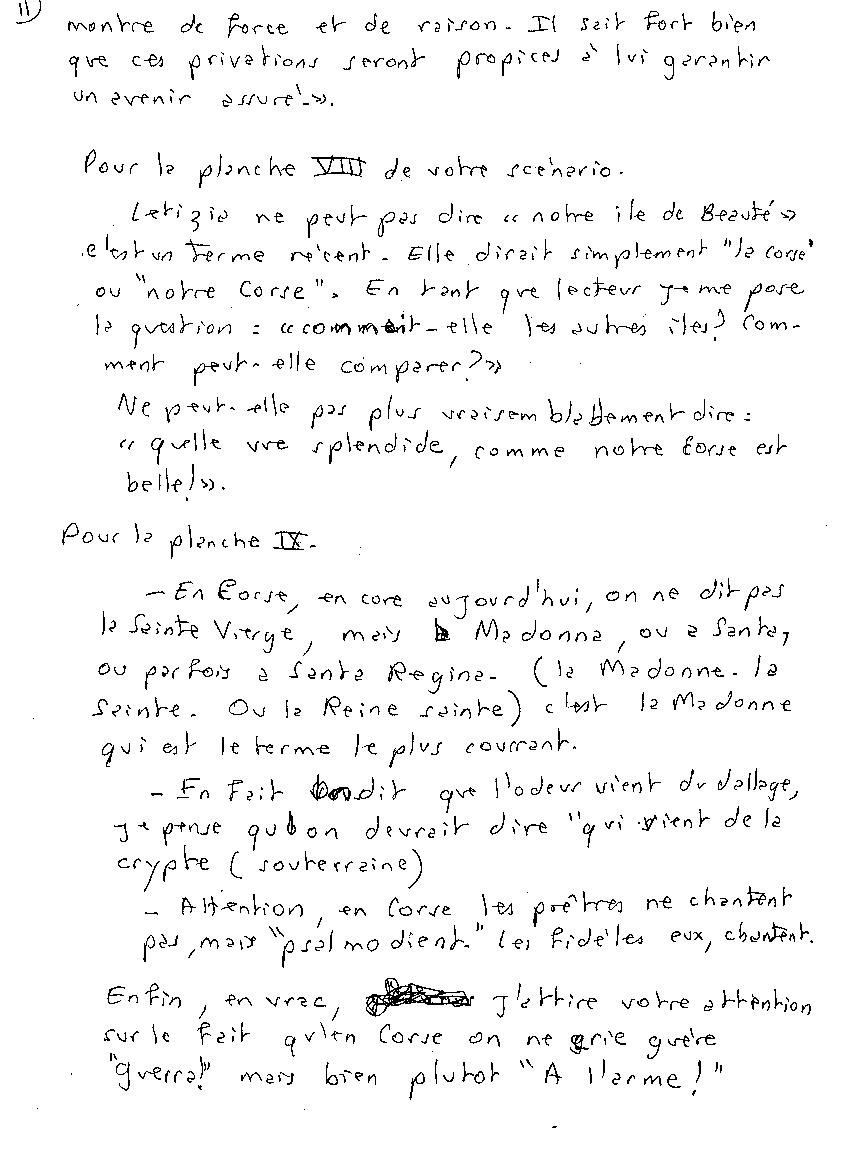 11)
montre de force et de raison. Il sait fort bien
que ces privations seront propices à lui garantir
un avenir assuré.».
Pour la planche VIII de votre scénario.
Letizia ne peut pas dire « notre ile de Beauté»
c'est un terme récent. Elle dirait simplement "la corse"
ou "notre Corse". En tant que lecteur je me pose
la question : «connait-elle les autres îles? Com-
ment peut-elle comparer?»
Ne peut-elle pas plus vraisemblablement dire :
« quelle vue splendide, comme notre Corse est
belle!».
Pour la planche IX.
- En Corse, encore aujourd'hui, on ne dit pas
la Sainte Vierge, mais a Madonna, ou a Santa,
ou parfois a Santa Regina. (la Madonne. la
Sainte. Ou la Reine sainte) c'est la Madonne
qui est le terme le plus courrant.
- En fait on dit que l'odeur vient du dallage,
je pense qu'on devrait dire "qui vient de la
crypte (souterraine)
- Attention, en Corse les prêtres ne chantent
pas, mais "psalmodient." Les fidèles eux, chantent.
Enfin, en vrac, j'attire votre attention
sur le fait qu'en Corse on ne crie guère
"guerra!" mais bien plutot "A l'arme!"